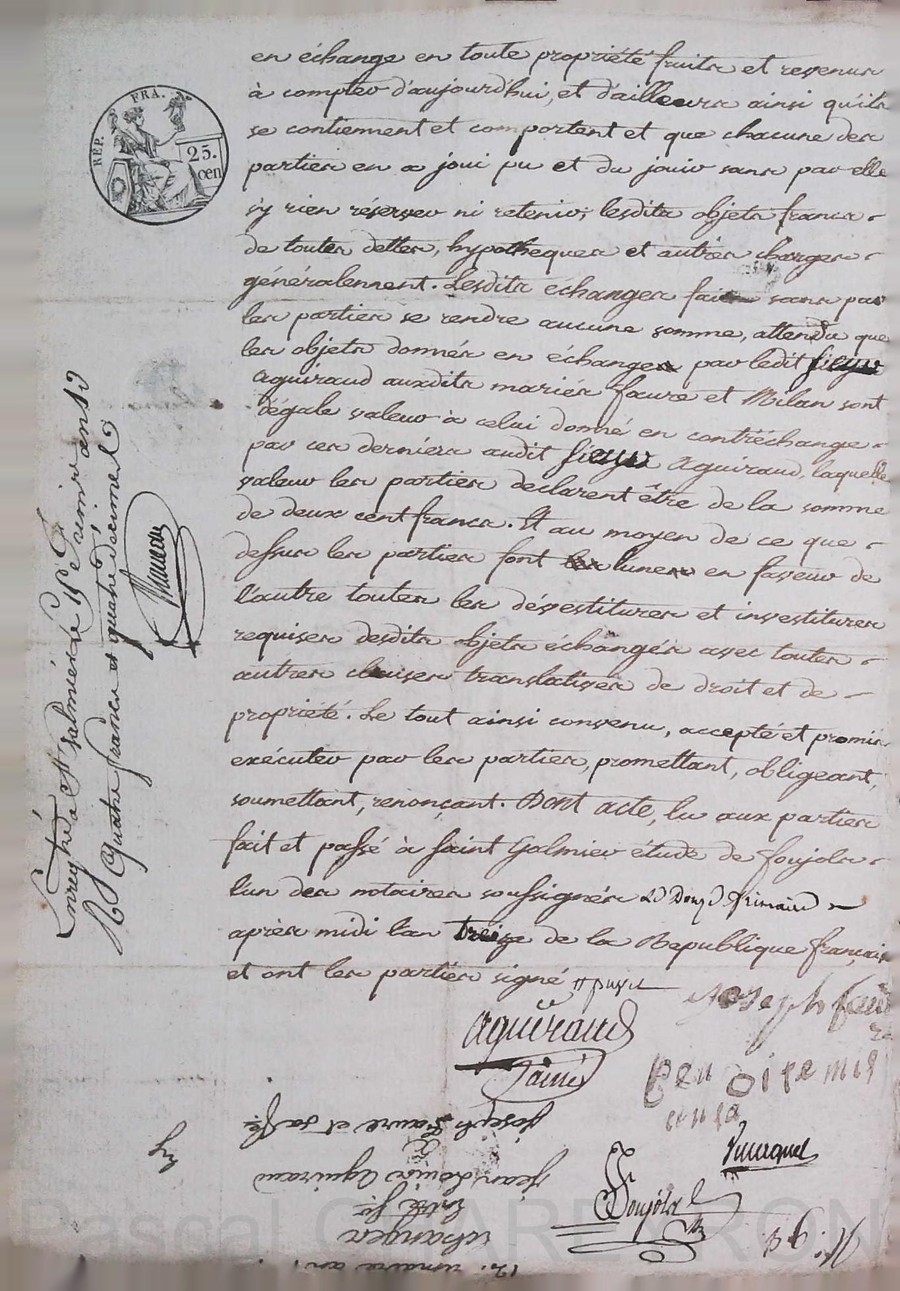 REP. FRA.
25.
cen
en échange en toute propriété fruits et revenus
à compter d'aujourd'hui, et d'ailleurs ainsi qu'ils
se contiennent et comportent et que chacune des
parties en a joui pu et du jouir sans par elle
s'y rien réserver ni retenir; lesdits objets francs
de toutes dettes, hypotheques et autres charges
généralement. Lesdits échanges faits sans par
les parties se rendre aucune somme, attendu que
les objets donnés en échanges par ledit sieur
aguiraud auxdits mariés faure et Milan sont
d'égale valeur à celui donné en contréchange
par ces derniers audit sieur aguiraud, laquelle
valeur les parties déclarent être de la somme
de deux cent francs. Et au moyen de ce que
dessus les parties font les lunes en faveur de
l'autre toutes les dévestitures et investitures
requises desdits objets échangés avec toutes
autres clauses translatives de droit et de
propriété. Le tout ainsi convenu, accepté et promis
exécuter par les parties, promettant, obligeant,
soumettant, renonçant. Dont acte, lu aux parties
fait et passé à saint Galmier étude de foujols
l'un des notaires soussignés le Douze frimaire
après midi l'an treize de la Republique français
et ont les parties signé
aguiraud
Lainé
joseph fau
Foujols
Enregistré à St galmier le 15 frimaire an 13
Rd Quatre francs et quarante decimes
12. frimaire an
échanges
Entre Sr.
jean Louis aguiraud
Et
joseph faure et sa fe.